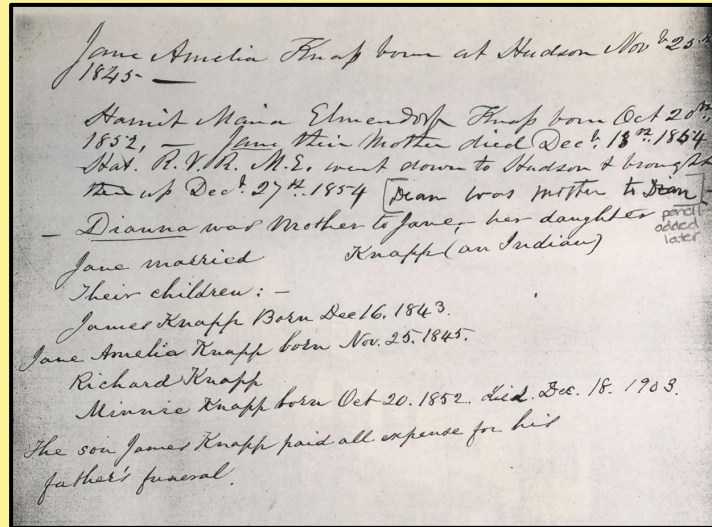 Jane Amelia Knap born at Hudson Nov.r 25th
1845 —
Harriet Maria Elmendorf Knap born Oct 20th,
1852, — Jane their Mother died Decr. 18th 1854
Hat. R.V.R. M.E. went down to Hudson & brought
them up Decr. 27th 1854 [Dian was mother to Dian] -
— Dianna was Mother to Jane, - her daughter
pencil
added
later
Jane married Knapp (an Indian)
Their children: —
James Knapp Born Dec 16. 1843.
Jane Amelia Knapp born Nov. 25. 1845.
Richard Knapp
Minnie Knapp born Oct 20. 1852. died. Dec. 18. 1903.
The son James Knapp paid all expense for his
father's funeral.